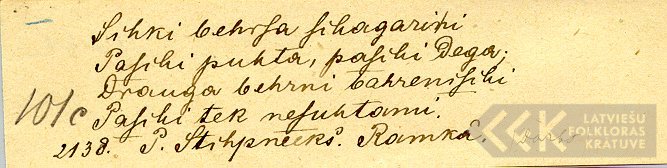 Sihki behrsa schagariņi
Paschi puhta, paschi dega;
Drauga behrni bahrenischi
101c
Paschi tek nesuhtami.
2138. P. Stihpneeks. Ramkā.
LATVIEŠU
FOLKLORAS
KRĀTUVE